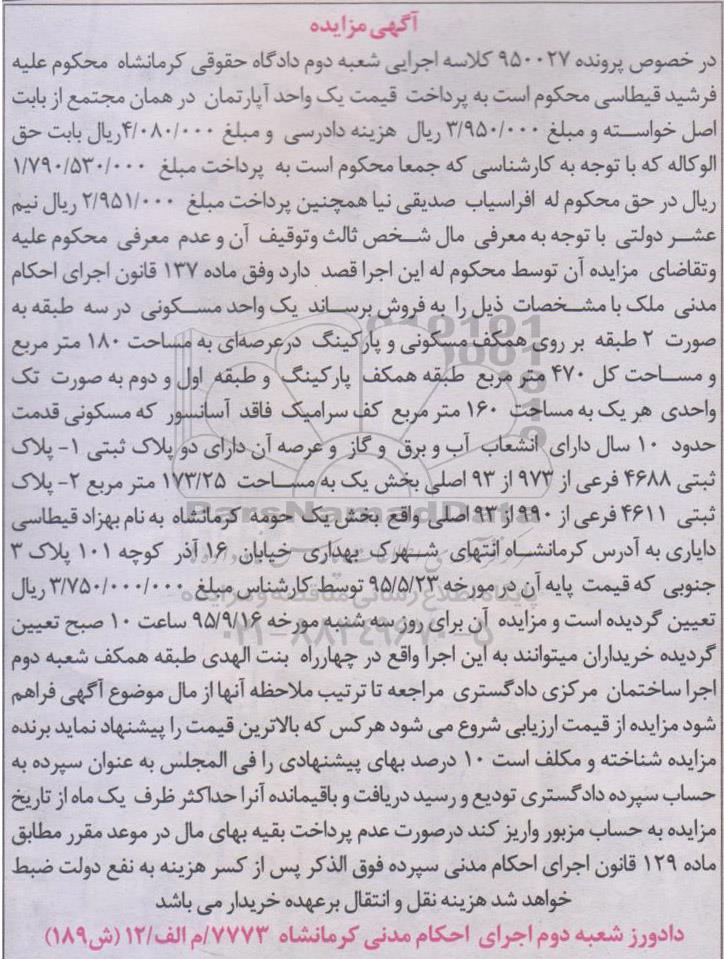 آگهی مزایده
در خصوص پرونده ۹۵۰۰۲۷ کلاسه اجرایی شعبه دوم دادگاه حقوقی کرمانشاه محکوم علیه
فرشید قیطاسی محکوم است به پرداخت قیمت یک واحد آپارتمان در همان مجتمع از بابت
اصل خواسته و مبلغ ۳/۹۵۰/۰۰۰ ریال هزینه دادرسی و مبلغ ۴/۰۸۰/۰۰۰ریال بابت حق
الوکاله که با توجه به کارشناسی که جمعا محکوم است به پرداخت مبلغ ۱/۷۹۰/۵۳۰/۰۰۰
ریال در حق محکوم له افراسیاب صدیقی نیا همچنین پرداخت مبلغ ۲/۹۵۱/۰۰۰ ریال نیم
عشر دولتی با توجه به معرفی مال شخص ثالث وتوقیف آن و عدم معرفی محکوم علیه
وتقاضای مزایده آن توسط محکوم له این اجرا قصد دارد وفق ماده ۱۳۷ قانون اجرای احکام
مدنی ملک با مشخصات ذیل را به فروش برساند یک واحد مسکونی در سه طبقه به
صورت ۲ طبقه بر روی همکف مسکونی و پارکینگ درعرصه‌ای به مساحت ۱۸۰ متر مربع
و مساحت کل ۴۷۰ متر مربع طبقه همکف پارکینگ و طبقه اول و دوم به صورت تک
واحدی هر یک به مساحت ۱۶۰ متر مربع کف سرامیک فاقد آسانسور که مسکونی قدمت
حدود ۱۰ سال دارای انشعاب آب و برق و گاز و عرصه آن دارای دو پلاک ثبتی ۱- پلاک
ثبتی ۴۶۸۸ فرعی از ۹۷۳ از ۹۳ اصلی بخش یک به مساحت ۱۷۳/۲۵ متر مربع ۲- پلاک
ثبتی ۴۶۱۱ فرعی از ۹۹۰ از ۹۳ اصلی واقع بخش یک حومه کرمانشاه به نام بهزاد قیطاسی
دایاری به آدرس کرمانشاه انتهای شهرک بهداری خیابان ۱۶ آذر کوچه ۱۰۱ پلاک ۳
جنوبی که قیمت پایه آن در مورخه ۹۵/۵/۲۳ توسط کارشناس مبلغ ۳/۷۵۰/۰۰۰/۰۰۰ ریال
تعیین گردیده است و مزایده آن برای روز سه شنبه مورخه ۹۵/۹/۱۶ ساعت ۱۰ صبح تعیین
گردیده خریداران میتوانند به این اجرا واقع در چهارراه بنت الهدی طبقه همکف شعبه دوم
اجرا ساختمان مرکزی دادگستری مراجعه تا ترتیب ملاحظه آنها از مال موضوع آگهی فراهم
شود مزایده از قیمت ارزیابی شروع می شود هرکس که بالاترین قیمت را پیشنهاد نماید برنده
مزایده شناخته و مکلف است ۱۰ درصد بهای پیشنهادی را فی المجلس به عنوان سپرده به
حساب سپرده دادگستری تودیع و رسید دریافت و باقیمانده آنرا حداکثر ظرف یک ماه از تاریخ
مزایده به حساب مزبور واریز کند درصورت عدم پرداخت بقیه بهای مال در موعد مقرر مطابق
ماده ۱۲۹ قانون اجرای احکام مدنی سپرده فوق الذکر پس از کسر هزینه به نفع دولت ضبط
خواهد شد هزینه نقل و انتقال برعهده خریدار می باشد
دادورز شعبه دوم اجرای احکام مدنی کرمانشاه ۷۷۷۳/م الف/۱۲ (ش۱۸۹)
ParsNamadData
۰۲۱-۸۸۳۴۹۶۷۰-۵